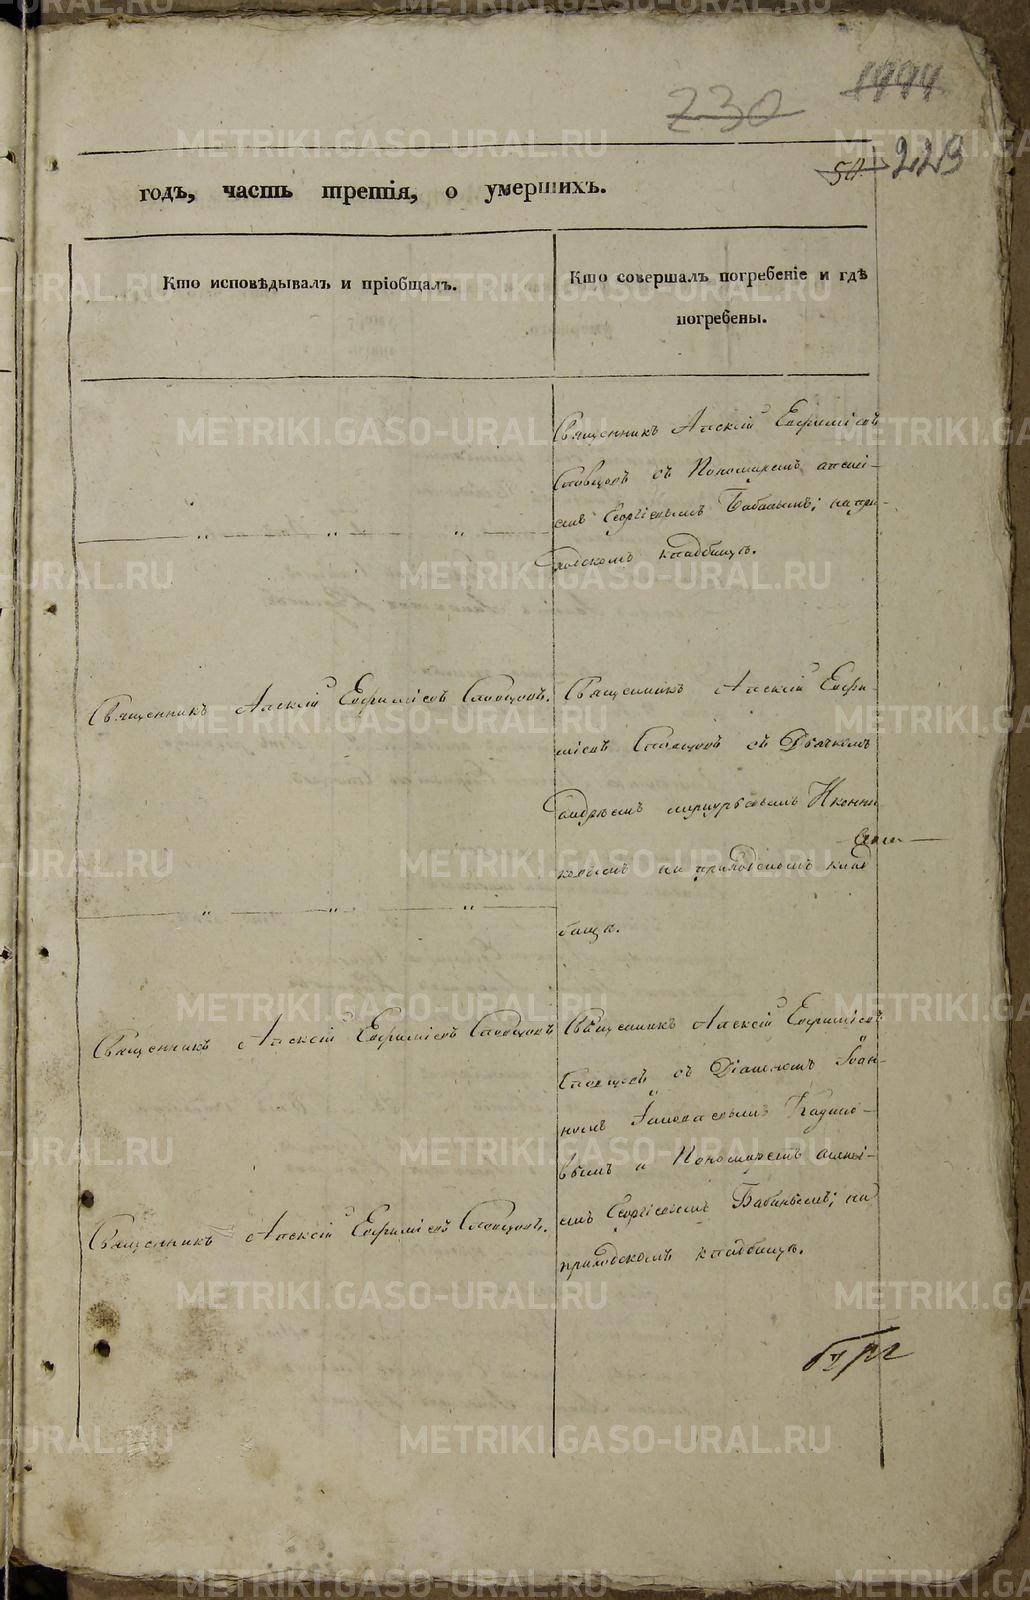 1994
230
229
годъ, часть третія, о умершихъ.
Кто исповѣдывалъ и пріобщалъ.
Кто совершалъ погребеніе и гдѣ
погребены.
Священникъ Алексій Евфиміевъ
Словцовъ съ Пономаремъ алексі-
емъ Георгіевымъ Бабинымъ; на при-
ходскомъ кладбищѣ.
Священникъ Алексій Евфиміевъ Словцовъ.
Священникъ Алексій Евфи-
міевъ Словцовъ съ Дьячкомъ
андреемъ Иконни
ковымъ на приходскомъ клад
бищѣ.
Священникъ Алексій Евфиміевъ Словцовъ
Священникъ Алексій Евфиміевъ
Словцовъ съ Діакономъ Іоан-
номъ
вымъ и Пономаремъ алексі-
емъ Георгіевымъ Бабинымъ; на
приходскомъ кладбищѣ.
Священникъ Алексій Евфиміевъ Словцовъ.
METRIKI.GASO-URAL.RU